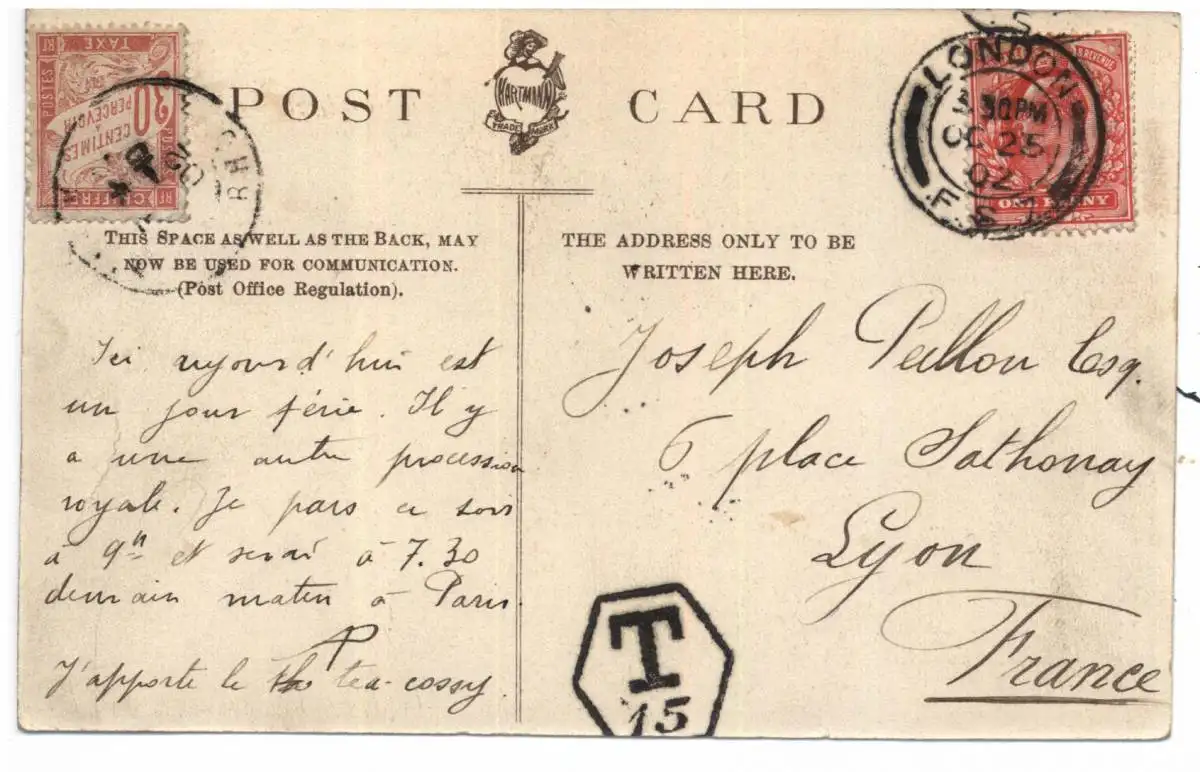 POST CARD
HARTMANN
TRADE MARK
POSTES
TAXE
RF
30
CENTIMES
A PERCEVOIR
CHIFFRE
RF
LONDON
30 PM
OC 25
02
ONE PENNY
THIS SPACE AS WELL AS THE BACK, MAY
NOW BE USED FOR COMMUNICATION.
(Post Office Regulation).
THE ADDRESS ONLY TO BE
WRITTEN HERE.
Ici aujourd'hui est
un jour férié. Il y
a une autre procession
royale. Je pars ce soir
à 9h et serai à 7.30
demain matin à Paris.
P
J'apporte le tea-cossy.
Joseph Esq.
6 place Sathonay
Lyon
France
T
15